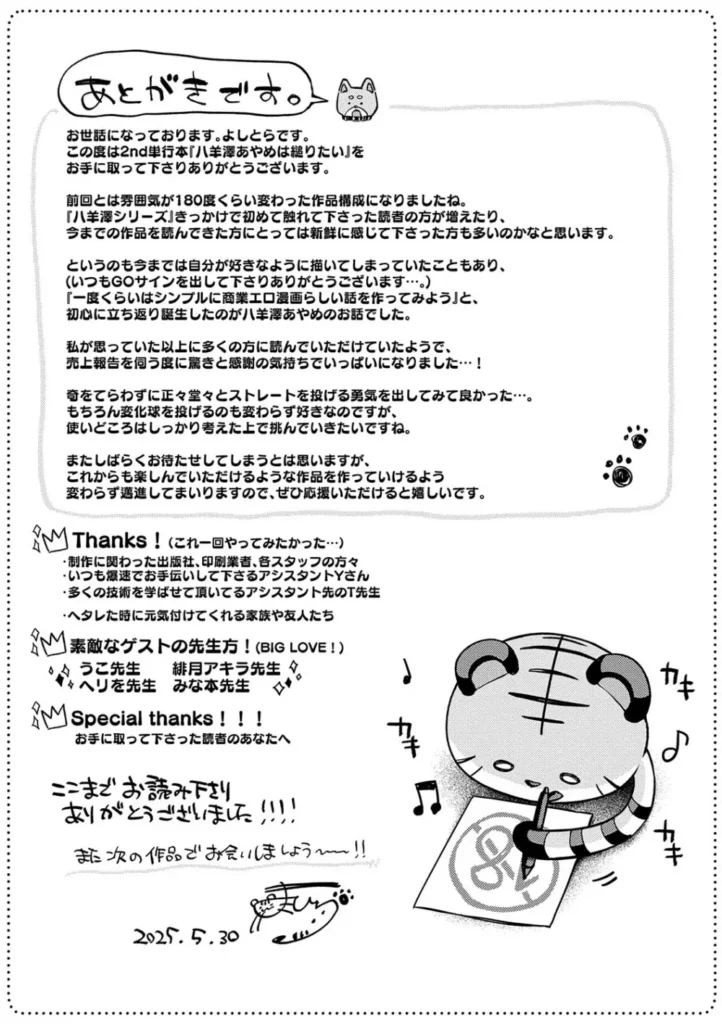 あとがきです。
お世話になっております。よしとらです。
この度は2nd単行本『八羊澤あやめは縋りたい』を
お手に取って下さりありがとうございます。
前回とは雰囲気が180度くらい変わった作品構成になりましたね。
『八羊澤シリーズ』きっかけで初めて触れて下さった読者の方が増えたり、
今までの作品を読んできた方にとっては新鮮に感じて下さった方も多いのかなと思います。
というのも今までは自分が好きなように描いてしまっていたこともあり、
(いつもGOサインを出して下さりありがとうございます…。)
『一度くらいはシンプルに商業エロ漫画らしい話を作ってみよう』と、
初心に立ち返り誕生したのが八羊澤あやめのお話でした。
私が思っていた以上に多くの方に読んでいただけていたようで、
売上報告を伺う度に驚きと感謝の気持ちでいっぱいになりました…！
奇をてらわずに正々堂々とストレートを投げる勇気を出してみて良かった…。
もちろん変化球を投げるのも変わらず好きなのですが、
使いどころはしっかり考えた上で挑んでいきたいですね。
またしばらくお待たせしてしまうとは思いますが、
これからも楽しんでいただけるような作品を作っていけるよう
変わらず邁進してまいりますので、ぜひ応援いただけると嬉しいです。
Thanks！(これ一回やってみたかった…)
・制作に関わった出版社、印刷業者、各スタッフの方々
・いつも爆速でお手伝いして下さるアシスタントYさん
・多くの技術を学ばせて頂いてるアシスタント先のT先生
・ヘタレた時に元気付けてくれる家族や友人たち
素敵なゲストの先生方！(BIG LOVE！)
うこ先生 緋月アキラ先生
ヘリを先生 みな本先生
Special thanks！！！
お手に取って下さった読者のあなたへ
ここまでお読み下さり
ありがとうございました!!!!
また次の作品でお会いしましょう〜〜!!
2025.5.30
カキ
カキ
カキ